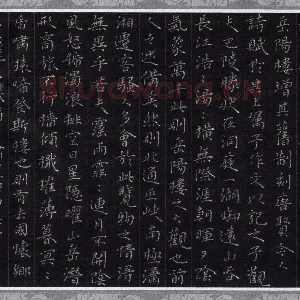 岳陽樓增其舊制刻唐賢今人
詩賦於其上屬予作文以記之予觀
夫巴陵勝狀在洞庭一湖銜遠山吞
長江浩浩湯湯橫無際涯朝暉夕陰
氣象萬千此則岳陽樓之大觀也前
人之述備矣然則北通巫峽南極瀟
湘遷客騷人多會於此覽物之情得
無異乎若夫霪雨霏霏連月不開陰
風怒號濁浪排空日星隱曜山岳潛
形商旅不行檣傾楫摧薄暮冥冥
虎嘯猿啼登斯樓也則有去國懷鄉
Shufawang.cn